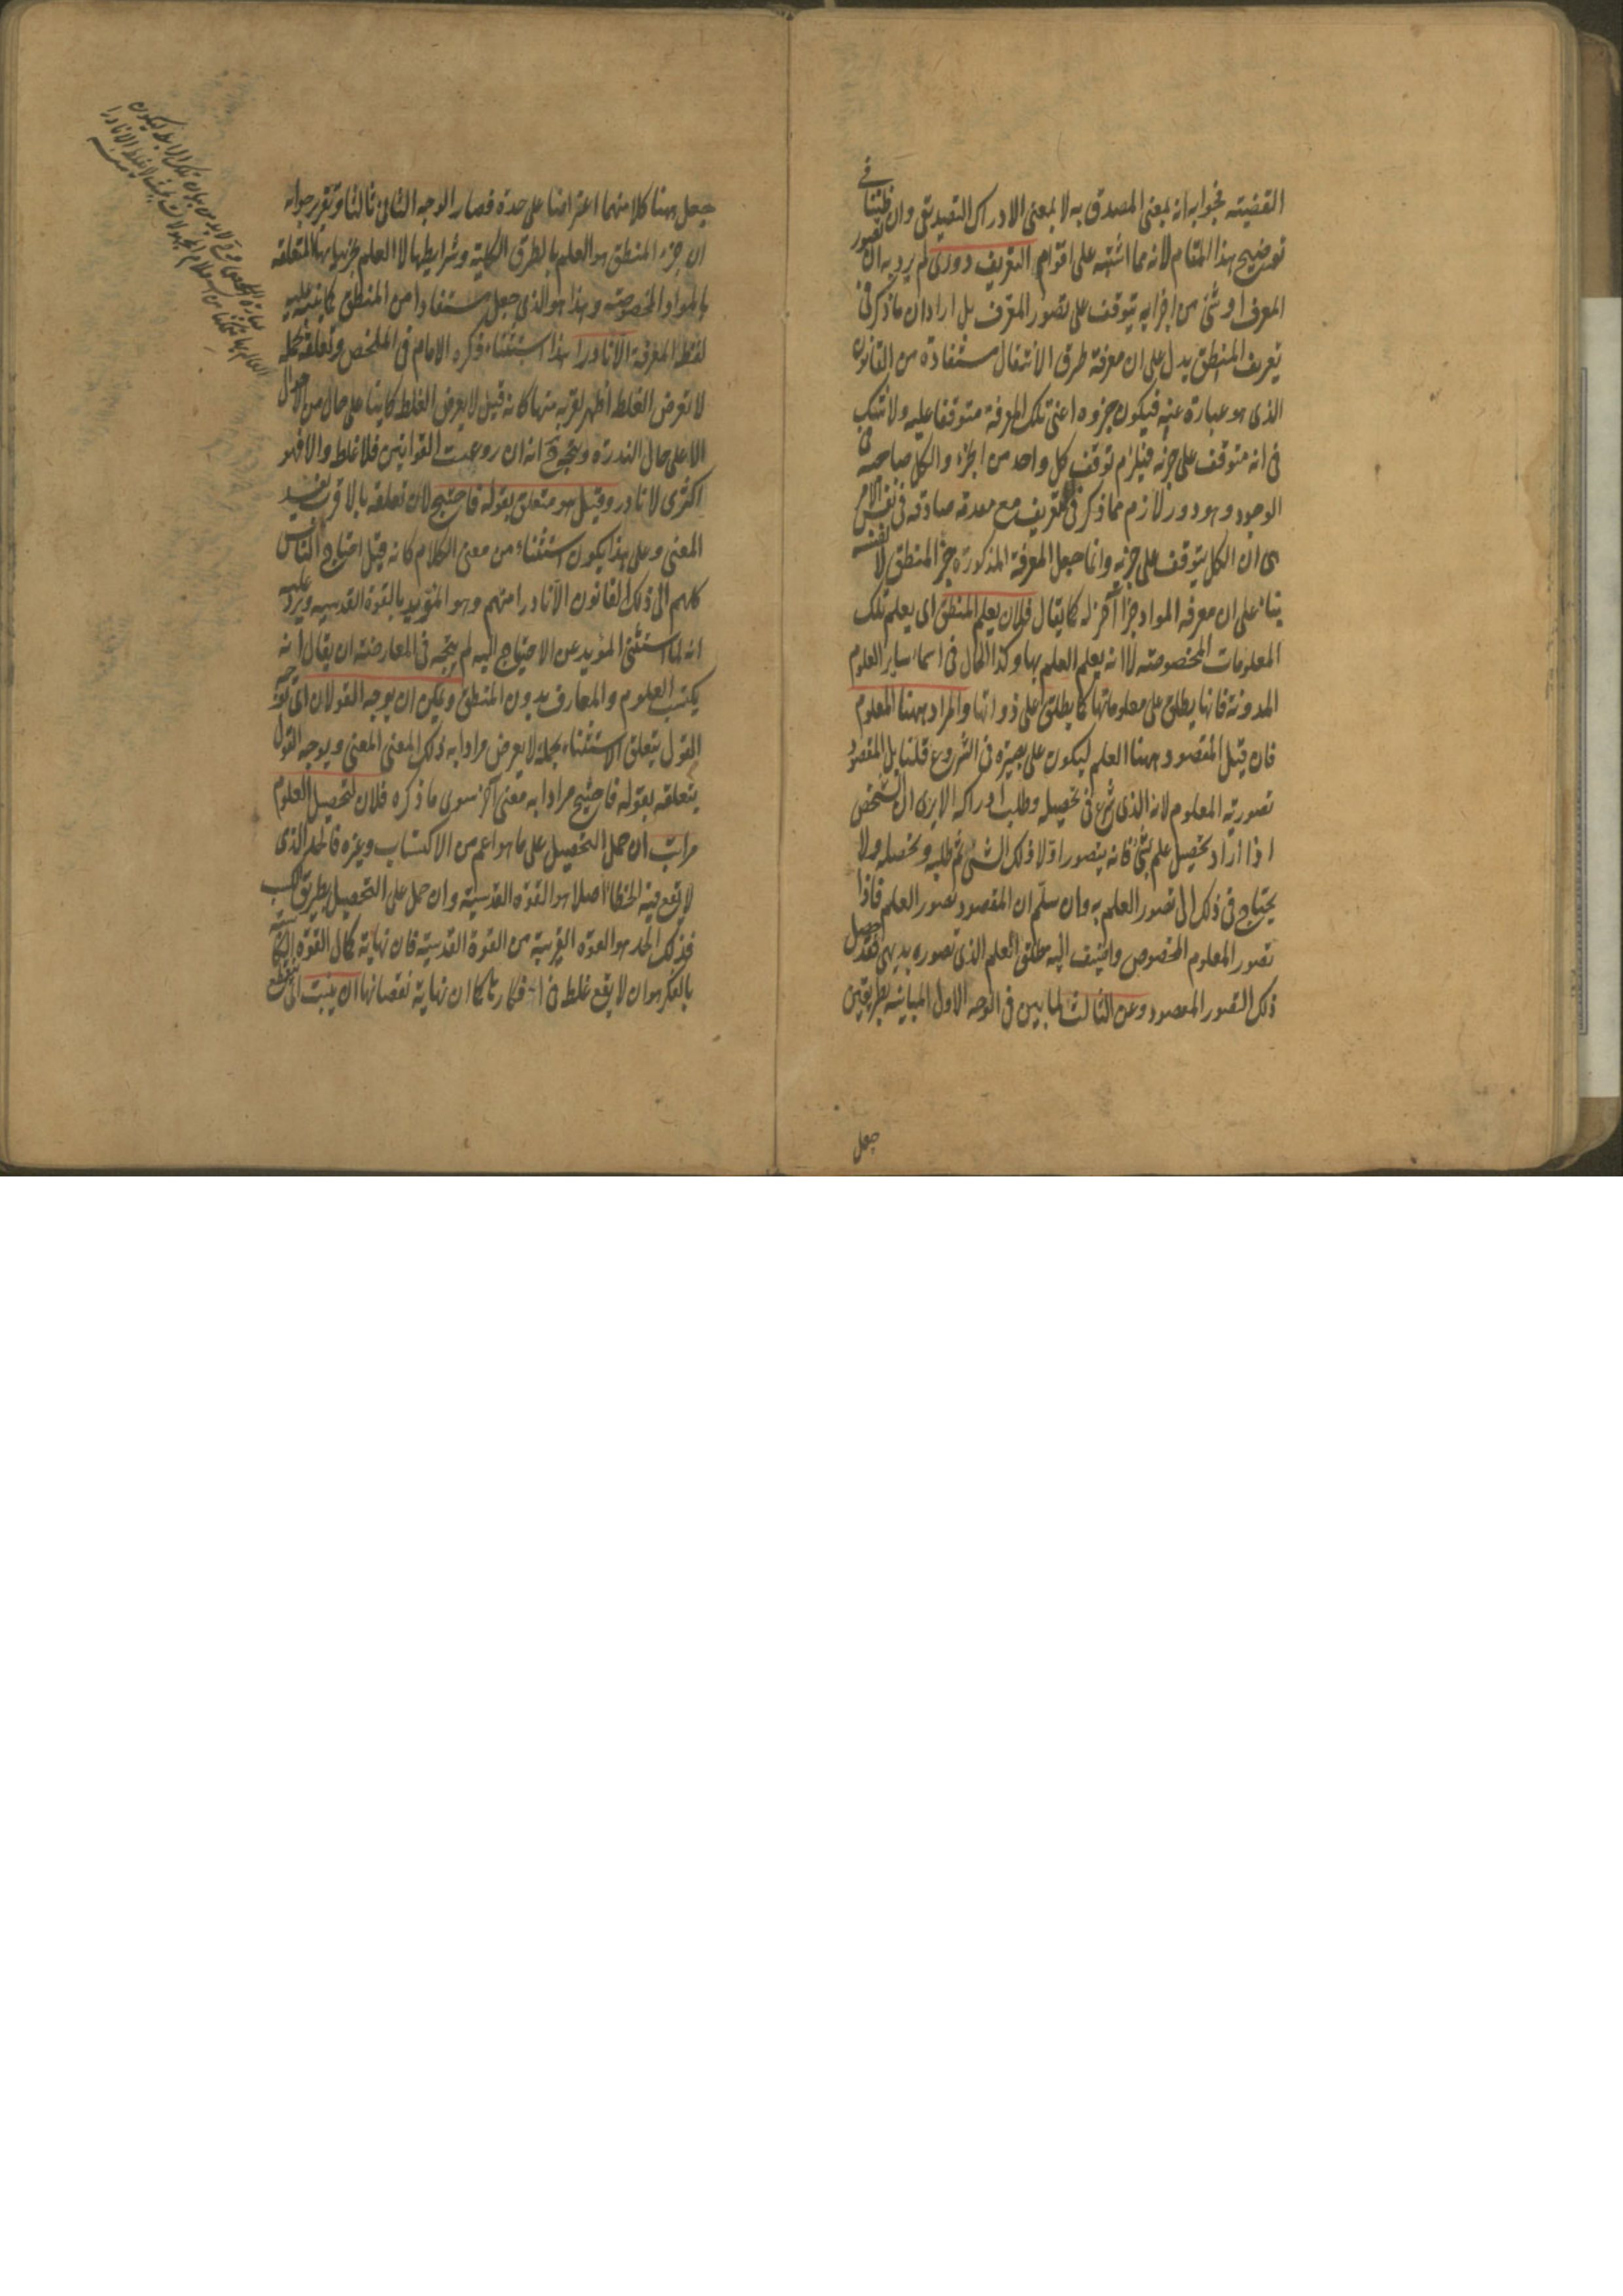 القضيته فجوابه انه بمعنى المصدق به لا بمعنى الادراك التصديقى وان ظننا فى
توضيح هذا المقام لانه مما اشتبه على اقوام التعريف دورى لم يرد به ان تصور
المعرف او شئ من اجزايه يتوقف على تصور المعرف بل اراد ان ما ذكر فى
تعريف المنطق يدل على ان معرفة طرق الانتقال مستفادة من القانون
الذى هو عبارة عنه فيكون جزوه اعنى تلك المعرفة متوقفا عليه ولا شك
فى انه متوقف على جزئه فيلزم توقف كل واحد من الجزء والكل صاحبه فى
الوجود وهو دور لازم مما ذكر فى التعريف مع مقدمة صادقه فى نفس الامر
هى ان الكل يتوقف على جزئه وانما جعل المعرفة المذكورة جزء المنطق لا نفسه
بناء على ان معرفة المواد جزء آخر له كما يقال فلان يعلم المنطق اى يعلم تلك
المعلومات المخصوصته لا انه يعلم العلم بها وكذا الحال فى اسماء ساير العلوم
المدونة فانها يطلق على معلوماتها كما يطلق على ذواتها والمراد ههنا المعلوم
فان قيل المقصود ههنا العلم ليكون على بصيرة فى الشروع قلنا بل المقصود
تصوريه المعلوم لانه الذى شرع فى تحصيله وطلب ادراكه الا يرى ان الشخص
اذا اراد تحصيل علم بشئ فانه يتصور اولا ذلك الشئ ثم طلبه وتحصيله ولا
يحتاج فى ذلك الى تصور العلم به وان سلم ان المقصود تصور العلم فاذا
تصور المعلوم المخصوص واضيف اليه مطلق العلم الذى تصوره بديهى فقد حصل
ذلك التصور المقصود وعن الثالث لما بين فى الوجه الاول المباينه بطريقين
جعل
جعل ههنا كلا منهما اعتراضا على حدة فصار الوجه الثانى ثالثا وتقرير جوابه
ان جزء المنطق هو العلم بالطرق الكلية وشرايطها لا العلم بجزيياتها المتعلقه
بالمواد المخصوصته وهذا هو الذى جعل مستفادا من المنطق كما نبه عليه
لفظ المعرفة الا نادرا هذا استثناء ذكره الامام فى الملخص وتعلقه بجمله
لا تعرض الغلط اظهر لقربه منها كانه قيل لا يعرض الغلط كاينا على حال من الاحوال
الا على حال الندرة ويتجه ح انه ان روعيت القوانين فلا غلط والا فهو
اكثرى لا نادر وقيل هو متعلق بقوله فاحتيج لان تعلقه بالاقرب يفسد
المعنى وعلى هذا يكون استثناء من معنى الكلام كانه قيل احتاج الناس
كلهم الى ذلك القانون الا نادرا منهم وهو المؤيد بالقوة القدسيه ويرد عليه
انه لما استثنى المؤيد عن الاحتياج اليه لم يتجه فى المعارضته ان يقال انه
يكتسب العلوم والمعارف بدون المنطق ويمكن ان يوجه القولان اى توجيه
القول يتعلق الاستثناء بجملة لا يعرض مرادا به ذلك المعنى المعنى ويوجه القول
يتعلقه بقوله فاحتيج مرادا به معنى آخر سوى ما ذكره فلان لتحصيل العلوم
مراتب ان حمل التحصيل على ما هو اعم من الاكتساب وغيره فالحد الذى
لا يقع فيه الخطا اصلا هو القوة القدسية وان حمل على التحصيل بطريق الكسب
فذلك الحد هو القوة القريبة من القوة القدسيته فان نهاية كمال القوة
بالفكر هو ان لا يقع غلط فى افكارنا كما ان نهاية نقصانها ان ينبت الى